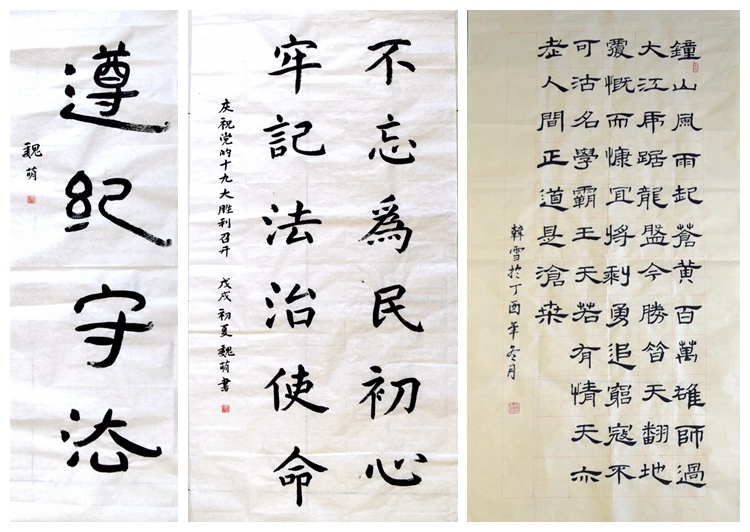 遵紀守法
魏萌
不忘爲民初心
牢記法治使命
庆祝党的十九大胜利召开 戊戌初夏 魏萌書
鐘山風雨起蒼黄百萬雄師過
大江虎踞龍盤今勝昔天翻地
覆慨而慷宜將剩勇追窮寇不
可沽名學霸王天若有情天亦
老人間正道是滄桑
韓雪於丁酉年冬月